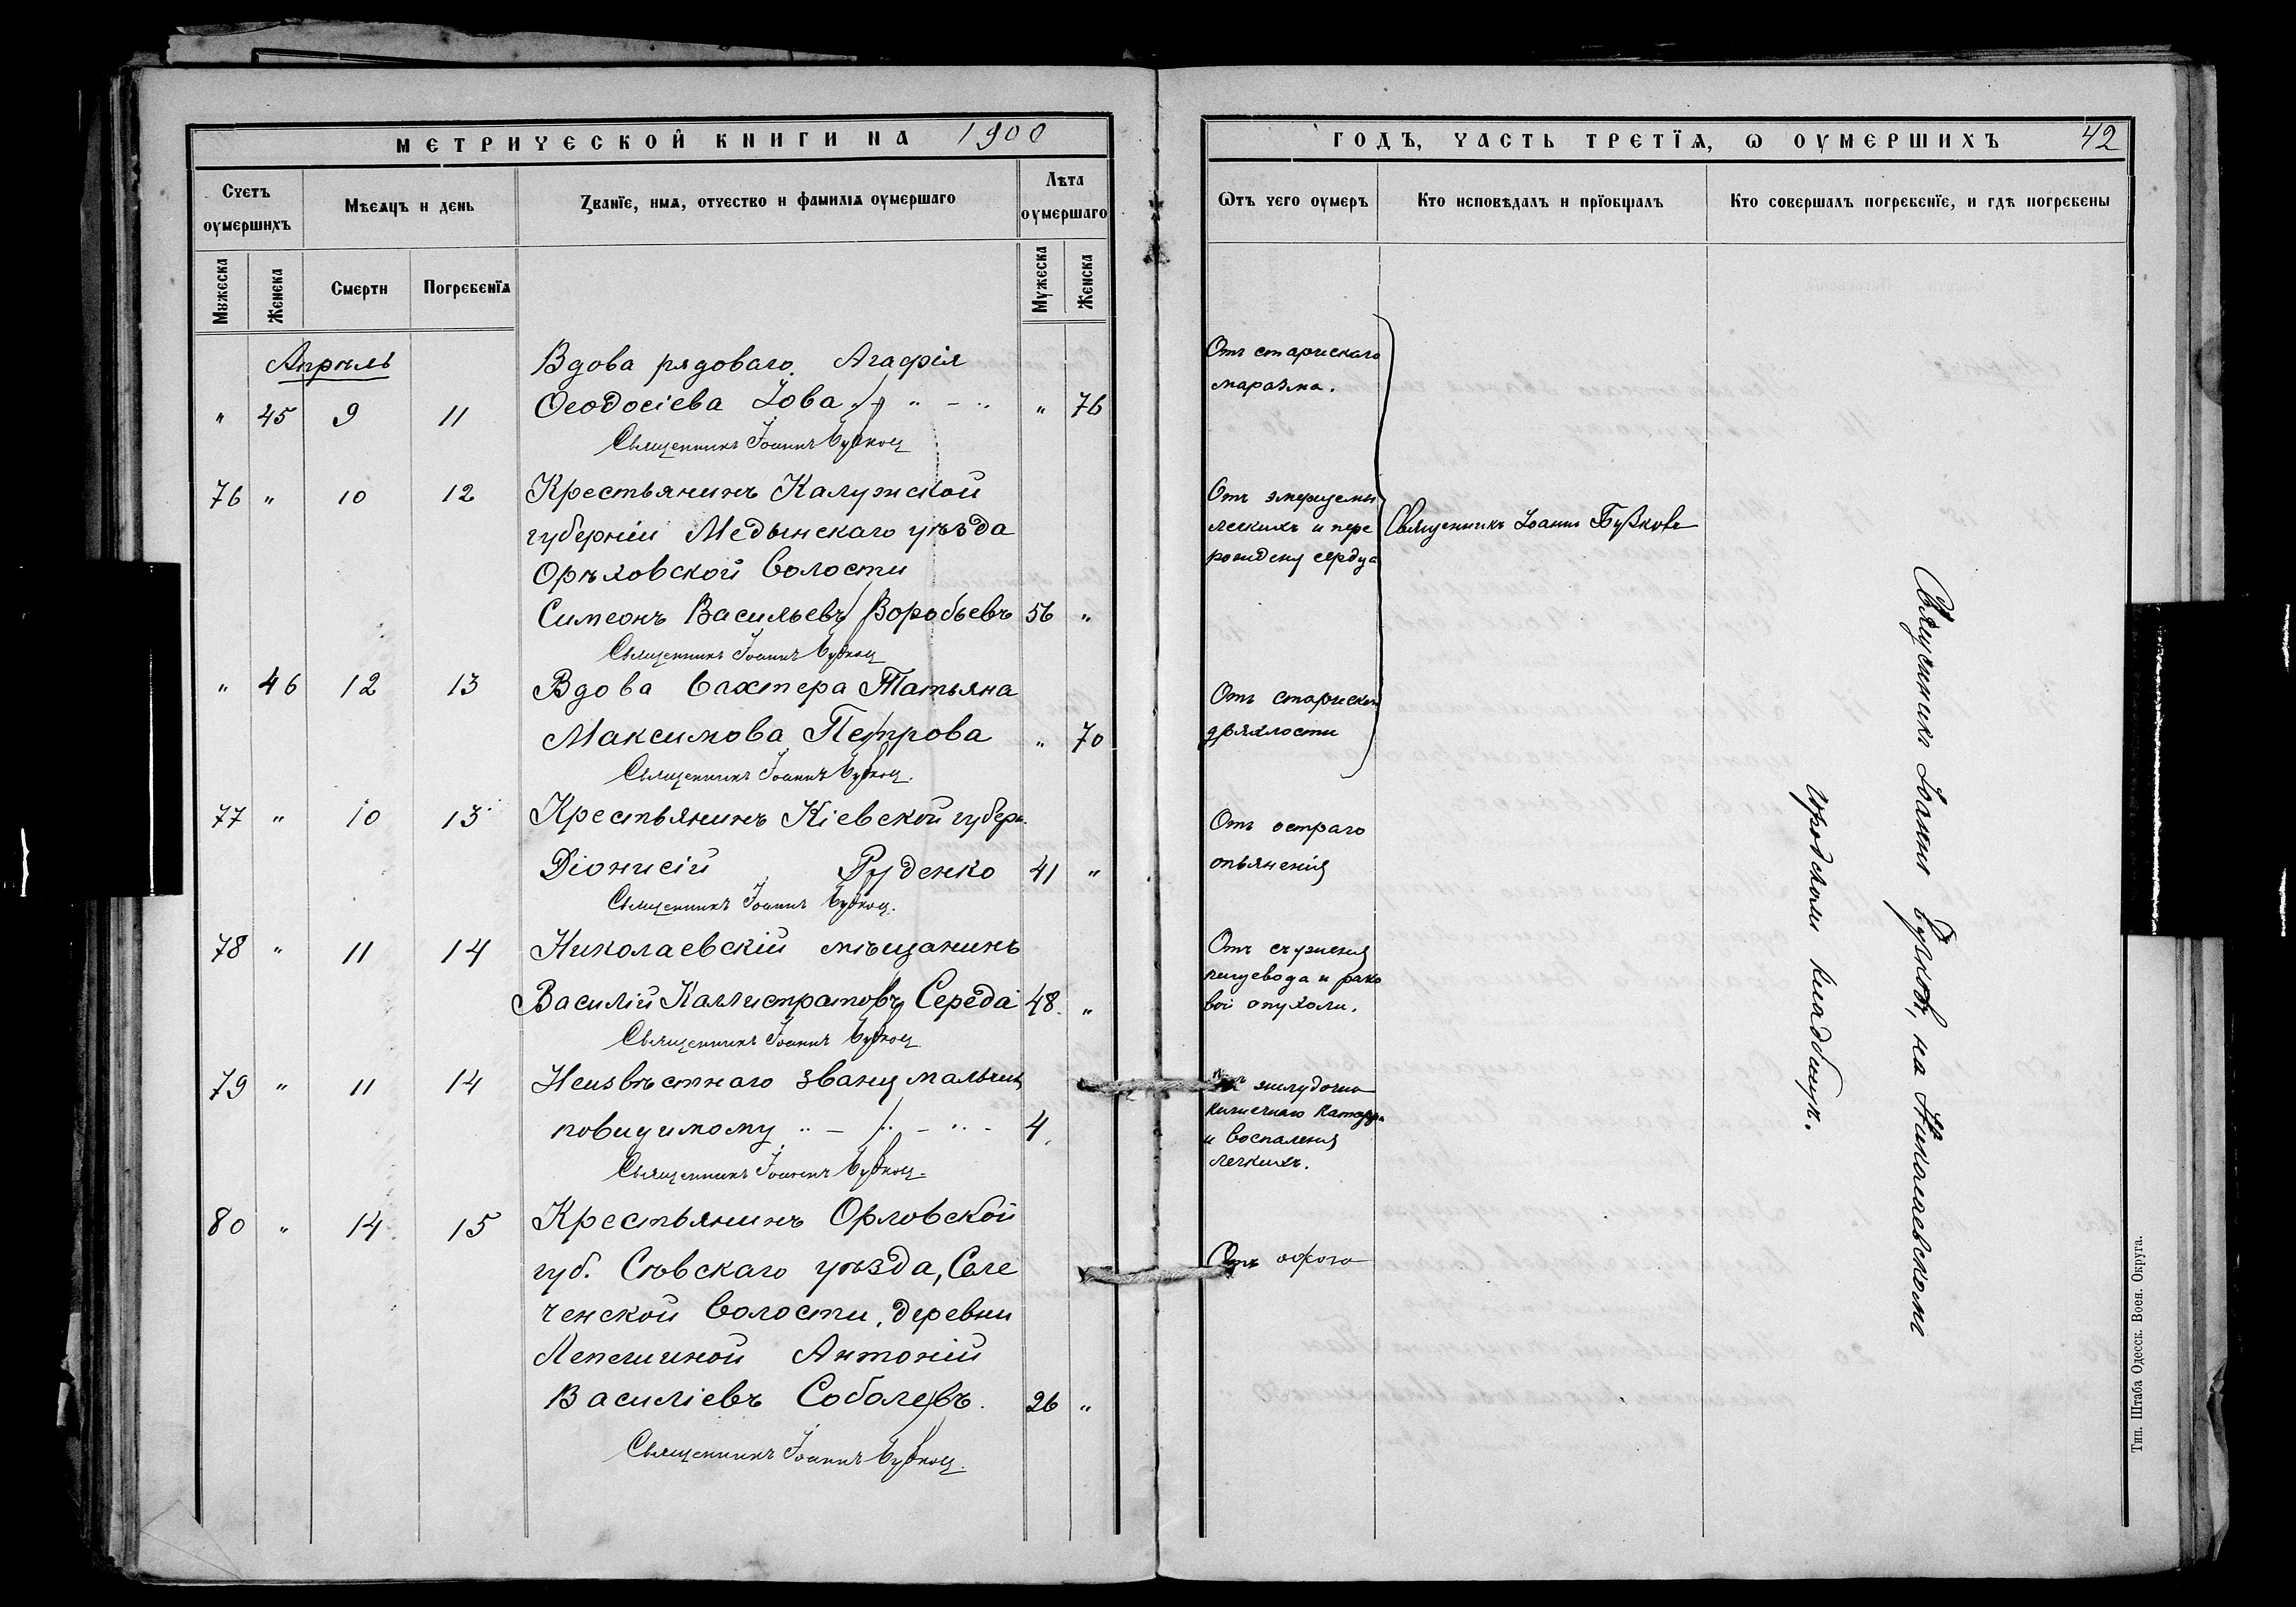 МЕТРИЧЕСКОЙ КНИГИ НА 1900
Счетъ оумершихъ
Мѣсяцъ и день
Званїе, имя, отчество и фамилія оумершаго
Лѣта оумершаго
Мужеска
Женска
Смерти
Погребенїя
Мужеска
Женска
Апрѣль
Вдова рядоваго Агафія
" 45 9 11 Ѳеодосіева Зова " - " " 76
Священникъ Іоаннъ
76 " 10 12 Крестьянинъ Калужской
губерніи Медынскаго уѣзда
Орѣховской волости
Симеонъ Васильевъ Воробьевъ 56 "
Священникъ Іоаннъ
" 46 12 13 Вдова вахтера Татьяна
Максимова Петрова " 70
Священникъ Іоаннъ
77 " 10 13 Крестьянинъ Кіевской губерн.
Діонисій Руденко 41 "
Священникъ Іоаннъ
78 " 11 14 Николаевскій мѣщанинъ
Василій Каллистратовъ Середа 48 "
Священникъ Іоаннъ
79 " 11 14 Неизвѣстнаго званія мальчикъ
повидимому " - " - 4.
Священникъ Іоаннъ
80 " 14 15 Крестьянинъ Орловской
губ. Сѣвскаго уѣзда, Селе
ченской волости, деревни
Лепешиной Антоній
Василіевъ Соболевъ. 26 "
Священникъ Іоаннъ
ГОДЪ, ЧАСТЬ ТРЕТЇЯ, Ѡ ОУМЕРШИХЪ 42
Ѿтъ чего оумеръ
Кто исповѣдалъ и прїобщалъ
Кто совершалъ погребенїе, и гдѣ погребены
Отъ старческаго
маразма.
Отъ эмфиземы
легкихъ и пере
рожденія сердца
Священникъ Іоаннъ
Отъ старческой
дряхлости
Отъ остраго
опьяненія
Отъ съуженія
пищевода и рако
вой опухоли.
Отъ желудочно
кишечнаго катарра
и воспаленія
легкихъ.
Отъ ожога
Священникъ Іоаннъ на Николаевскомъ
городскомъ кладбищѣ.
Тип. Штаба Одесск. Воен. Округа.